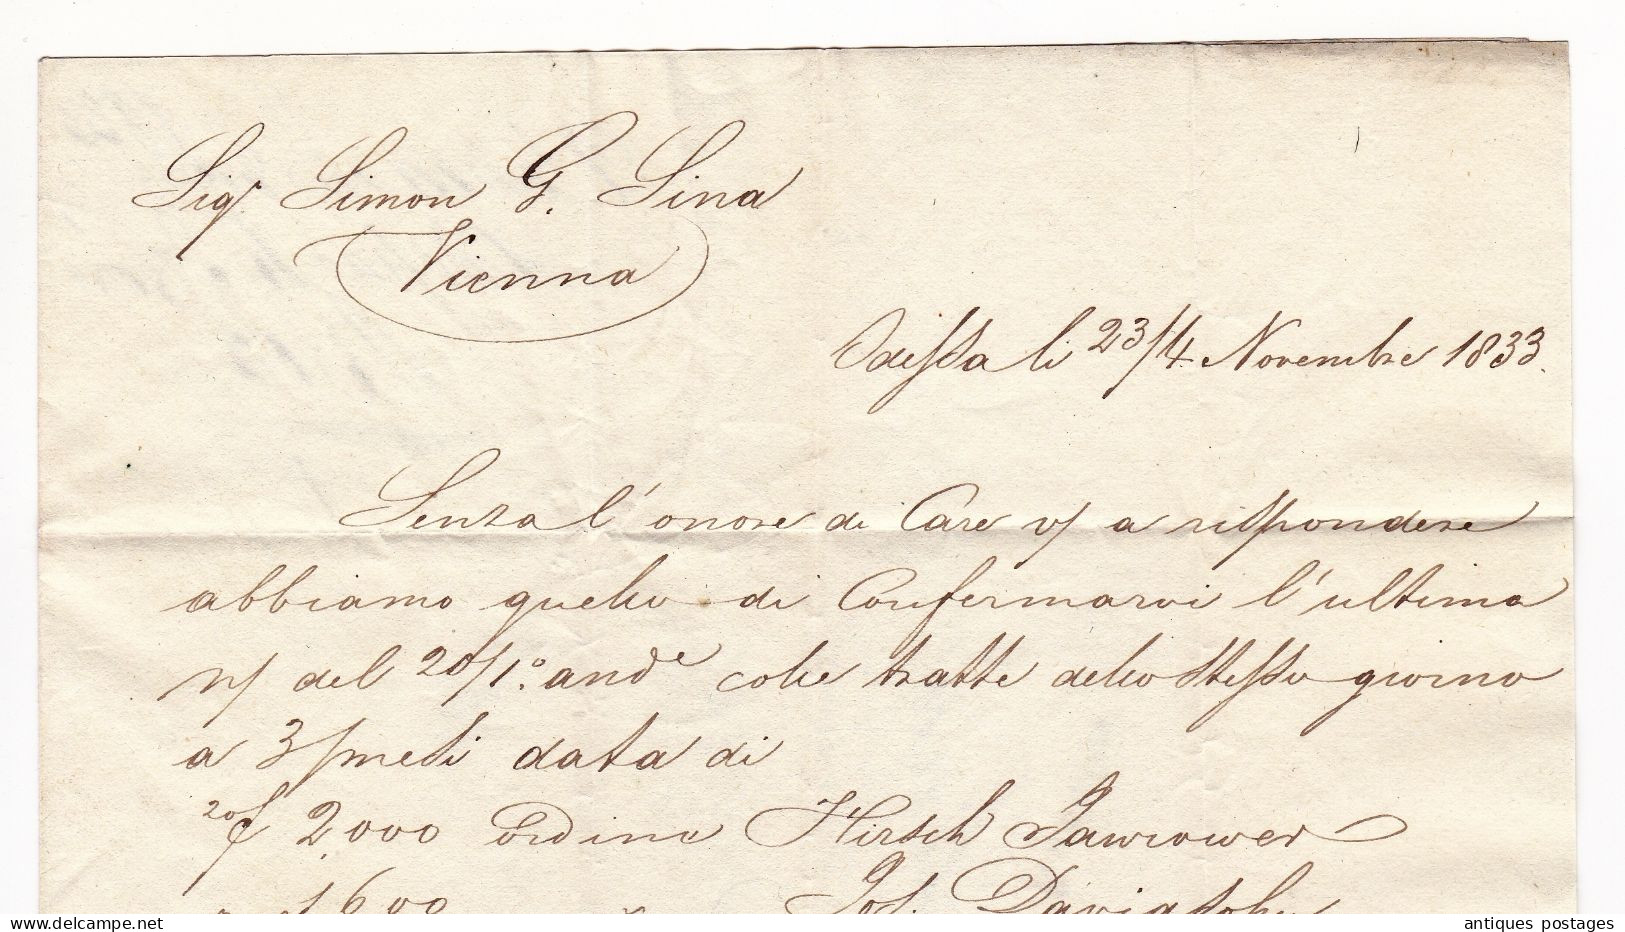 Sigr. Simon G. Sina
Vienna
Odessa li 23/4 Novembre 1833.
Senza l'onore di Care v/ a rispondere
abbiamo quello di Confermarvi l'ultima
n/ del 20/1.° andᵉ colle tratte dello stesso giorno
a 3/mesi data di
20/f 2,000 ordine Hirsch Jawrower
f 600 Jos.
delcampe.net
antiques postages